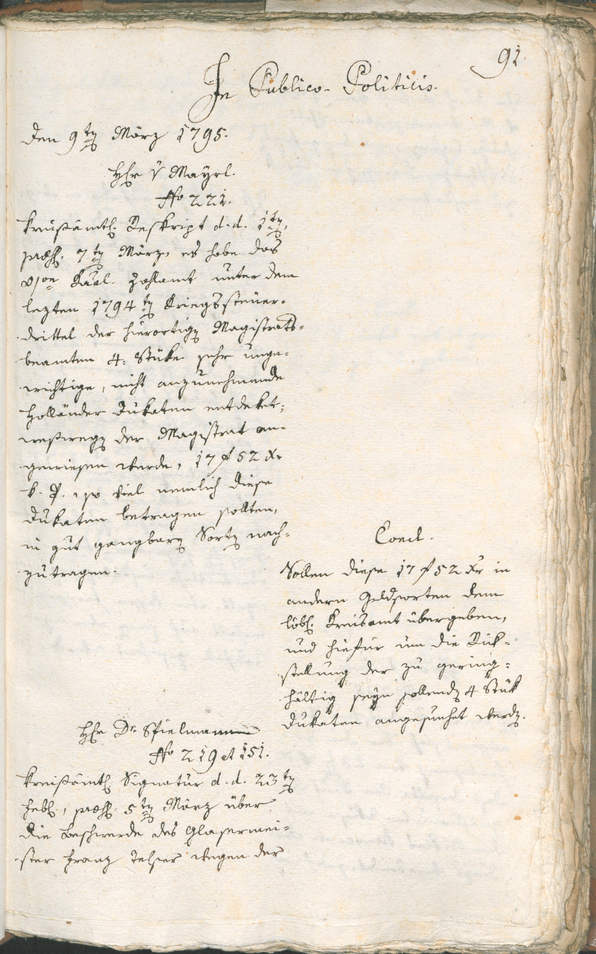 91.
In Publico-Politicis.
Den 9ten März 1795.
Hr. v Mayrl.
No 221.
Kreisämtl. Reskript d. d. 1ten,
praes. 7ten März, es habe das
Kaal. Zahlamt unter dem
lezten 1794ten Kriegssteuer-
drittel der hierortigen Magistrats-
beamten 4. Stüke sehr unge-
wichtige, nicht anzunehmende
Holländer Dukaten entdeket,
weßwegen der Magistrat an-
gewiesen werde, 17 f 52 Xr
so viel nemlich diese
Dukaten betragen sollten,
in gut gangbaren Sorten nach-
zutragen.
Concl.
Sollen diese 17 f 52 Xr in
andern Geldsorten dem
löbl. Kreisamt übergeben,
und hiefür um die Rük-
stellung der zu gering-
hältig seyn sollenden 4 Stük
Dukaten angesuchet werden.
Hr. Dr. Spielmann
No 219 et 151.
Kreisämtl. Signatur d. d. 23ten
Febr., praes. 5ten März über
die Beschwerde des Glasermei-
ster Franz wegen der